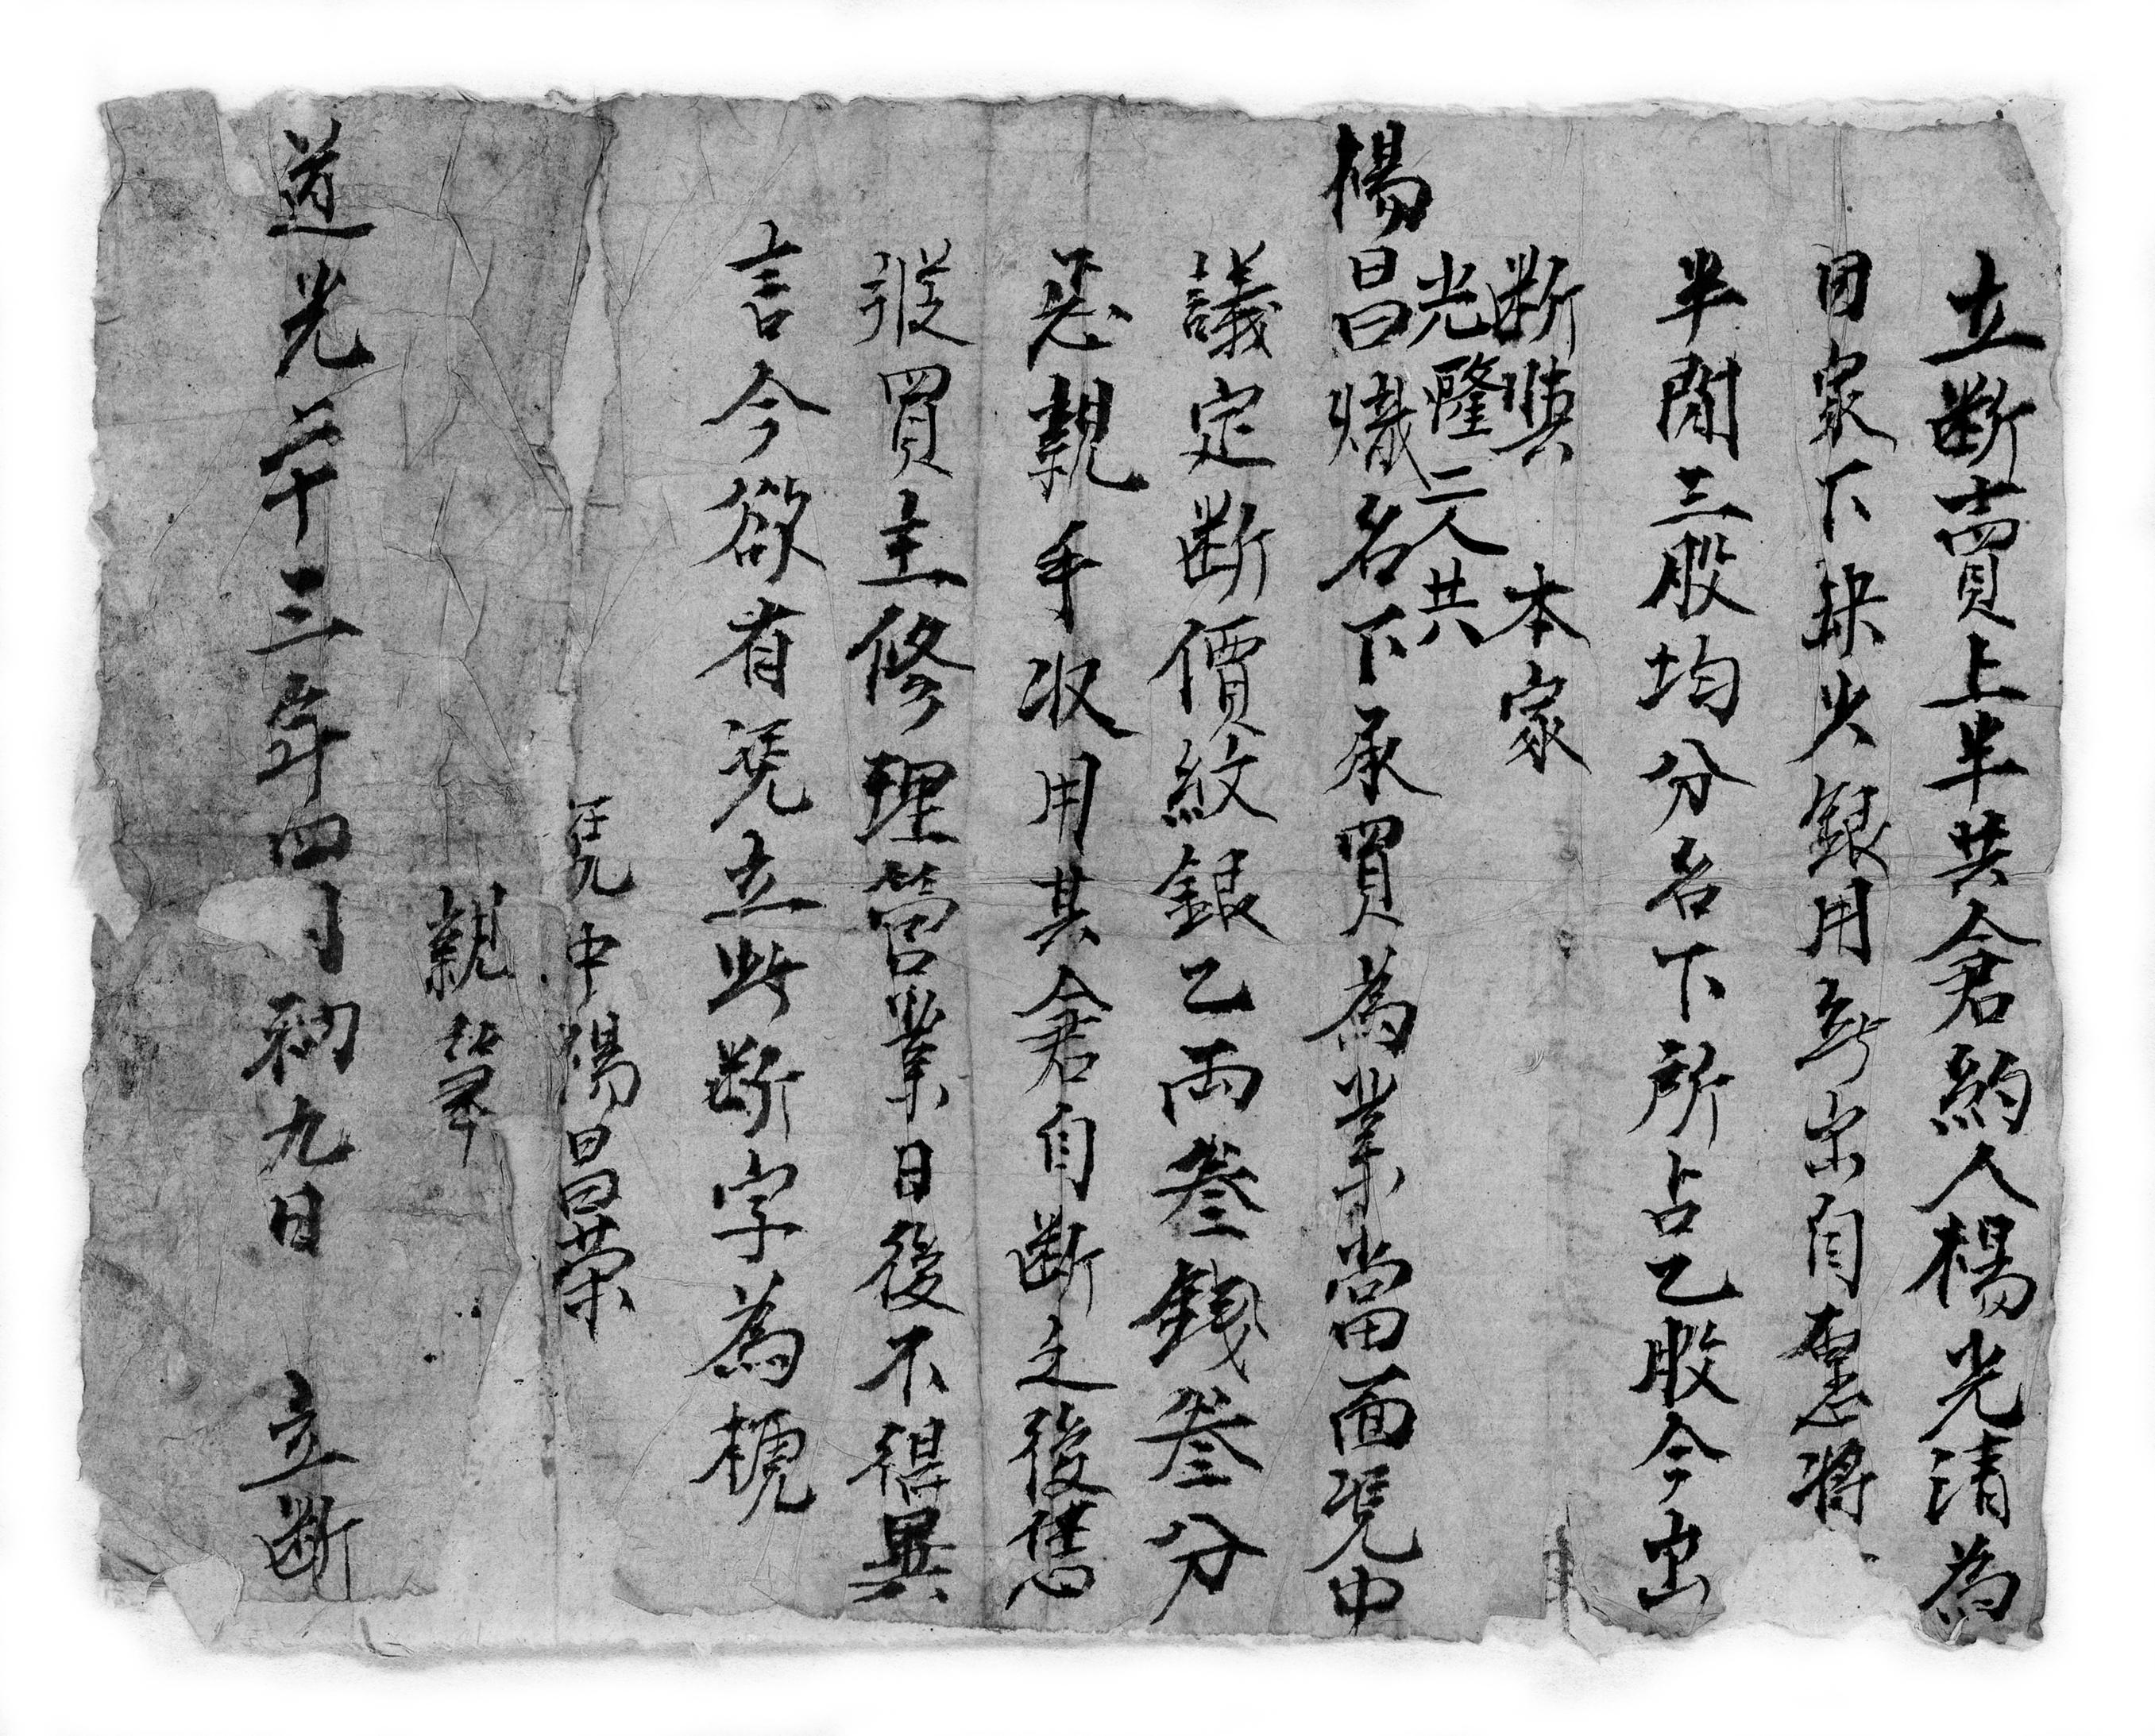 立断賣上半共倉約人楊光清為
因家下缺少銀用無出自愿將
半間三股均分名下所占乙股今出
断與 本家
光隆二人共
楊昌熾名下承買為業當面凭中
議定断價紋銀乙両叁錢叁分
悉親手収用其倉自断之後憑
従買主修理管業日後不得異
言今欲有凭立此断字為㯋
凭中楊昌荣
親筆
道光二十三年四月初九日 立断